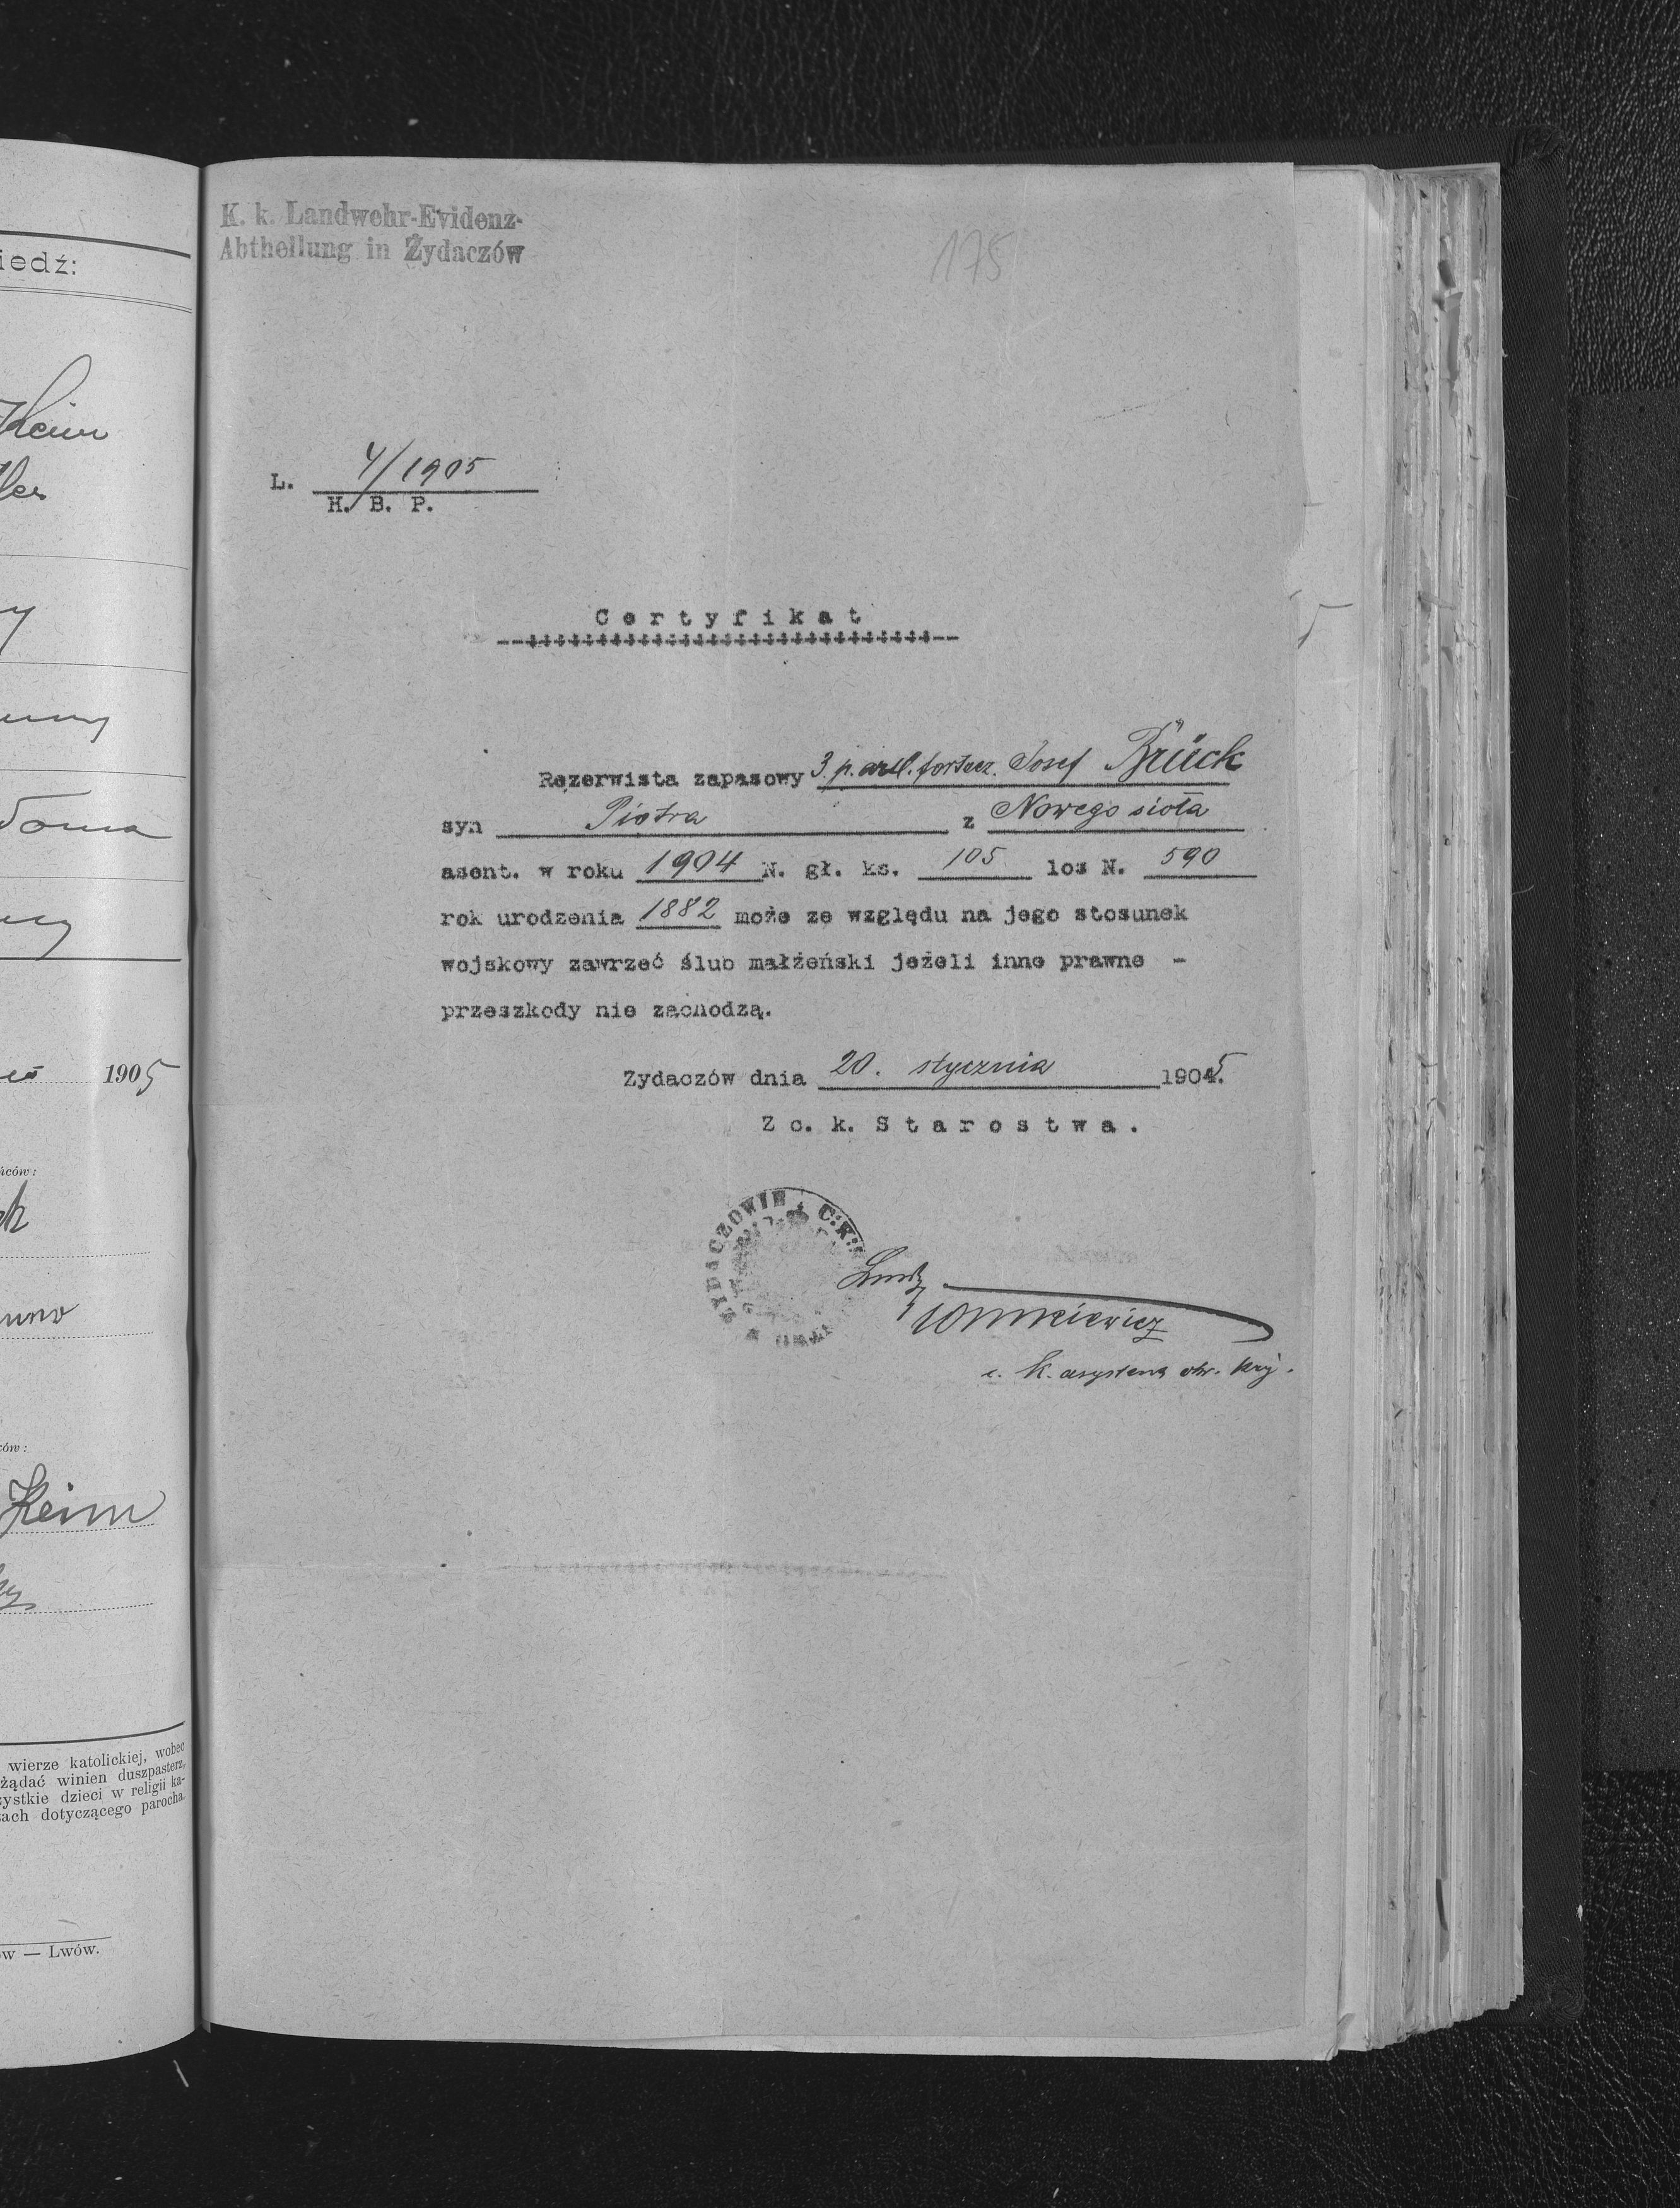 iedź:
Keim
ler
Doma
1905
ńców:
ck
ców:
Keim
wierze katolickiej, wobec
żądać winien duszpasterz,
zystkie dzieci w religii ka-
ach dotyczącego parocha.
ów — Lwów.
K. k. Landwehr-Evidenz-
Abtheilung in Żydaczów
175
L. 4/1905
H. B. P.
Certyfikat
--++++++++++++++++++++++++++++--
Rezerwista zapasowy 3. p. artl. fortecz. Josef Brück
syn Piotra z Nowego sioła
asent. w roku 1904 N. gł. ks. 105 los N. 590
rok urodzenia 1882 może ze względu na jego stosunek
wojskowy zawrzeć ślub małżeński jeżeli inne prawne -
przeszkody nie zachodzą.
Zydaczów dnia 20. stycznia 1905.
Z c. k. Starostwa.
C. K. W ŻYDACZOWIE
c. k. asystent obr. kraj.